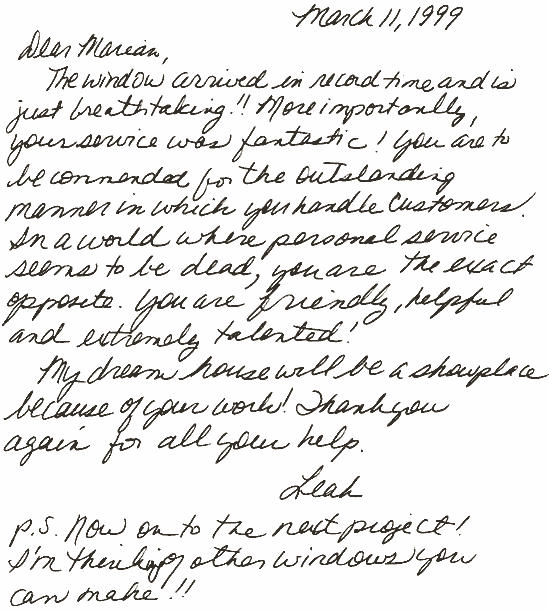 March 11, 1999
Dear Marian,
The window arrived in record time and is
just breathtaking!! More importantly,
your service was fantastic! You are to
be commended for the outstanding
manner in which you handle customers.
In a world where personal service
seems to be dead, you are the exact
opposite. You are friendly, helpful
and extremely talented!
My dream house will be a showplace
because of your work! Thank you
again for all your help.
Leah
P.S. Now on to the next project!
I'm thinking of other windows you
can make!!